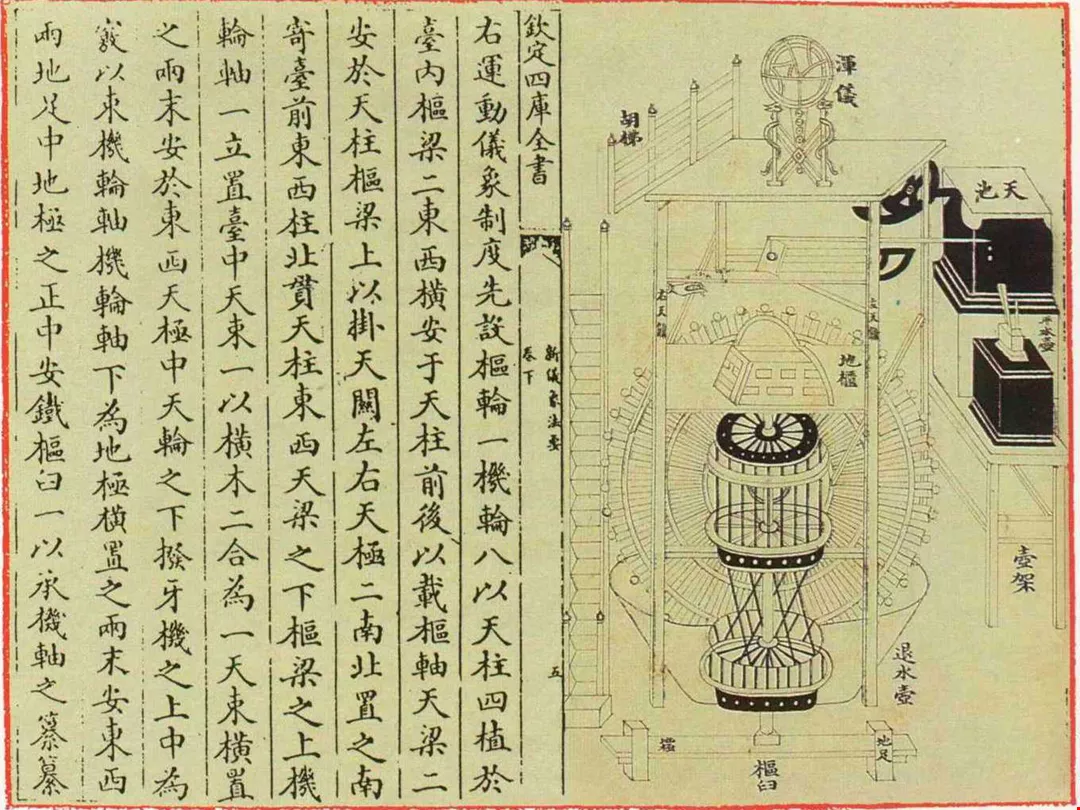 渾儀
胡梯
天池
平水壺
地櫃
壺架
退水壺
地足
樞臼
欽定四庫全書
新儀象法要
卷下
五
右運動儀象制度先設樞輪一機輪八以天柱四植於
臺内樞梁二東西橫安于天柱前後以載樞軸天梁二
安於天柱樞梁上以掛天關左右天極二南北置之南
寄臺前東西柱北貫天柱東西天梁之下樞梁之上機
輪軸一立置臺中天束一以橫木二合為一天束橫置
之兩末安於東西天極中天輪之下撥牙機之上中為
竅以束機輪軸機輪軸下為地極橫置之兩末安東西
兩地足中地極之正中安鐵樞臼一以承機軸之纂纂